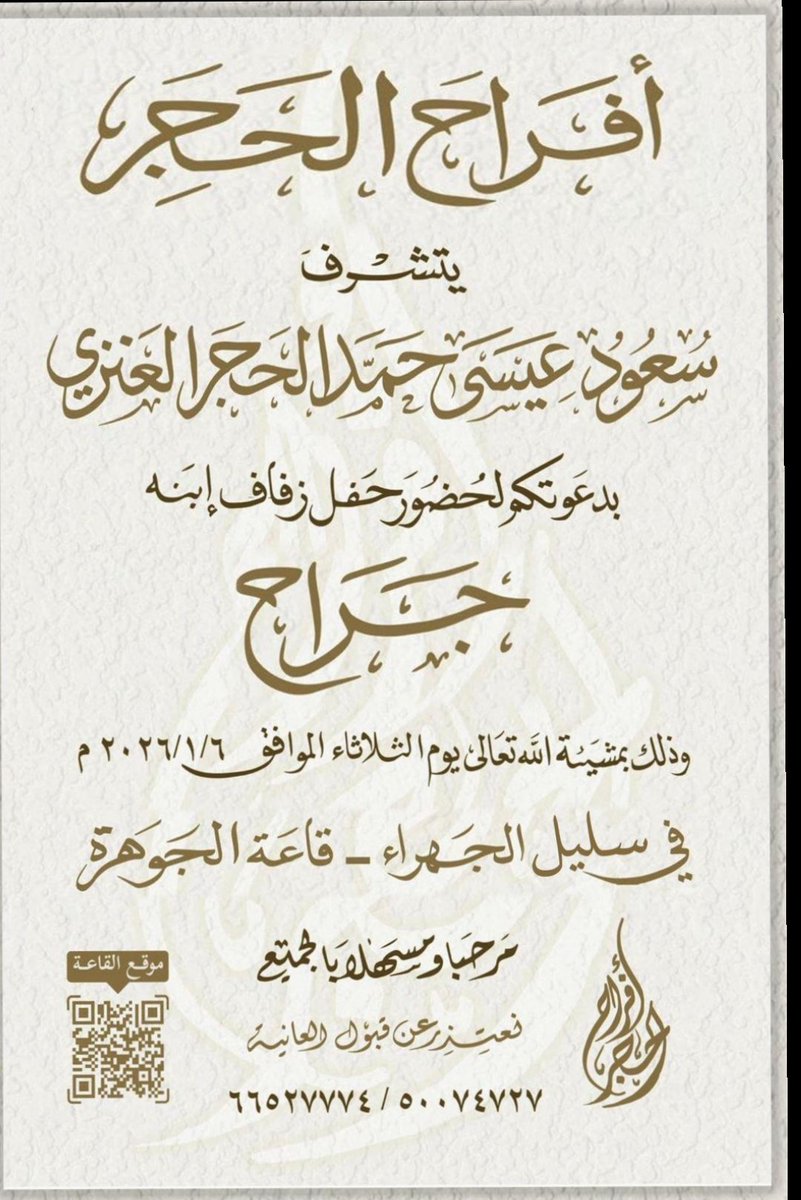 أفراح الحجر
يتشرف
سعود عيسى حمد الحجر العنزي
بدعوتكم لحضور حفل زفاف إبنه
جراح
وذلك بمشيئة الله تعالى يوم الثلاثاء الموافق ٢٠٢٦/١/٦ م
في سليل الجهراء - قاعة الجوهرة
مرحبا ومسهلا بالجميع
نعتذر عن قبول العانية
٦٦٥٢٧٧٧٤ / ٥٠٠٧٤٧٢٧
موقع القاعة
أفراح الحجر